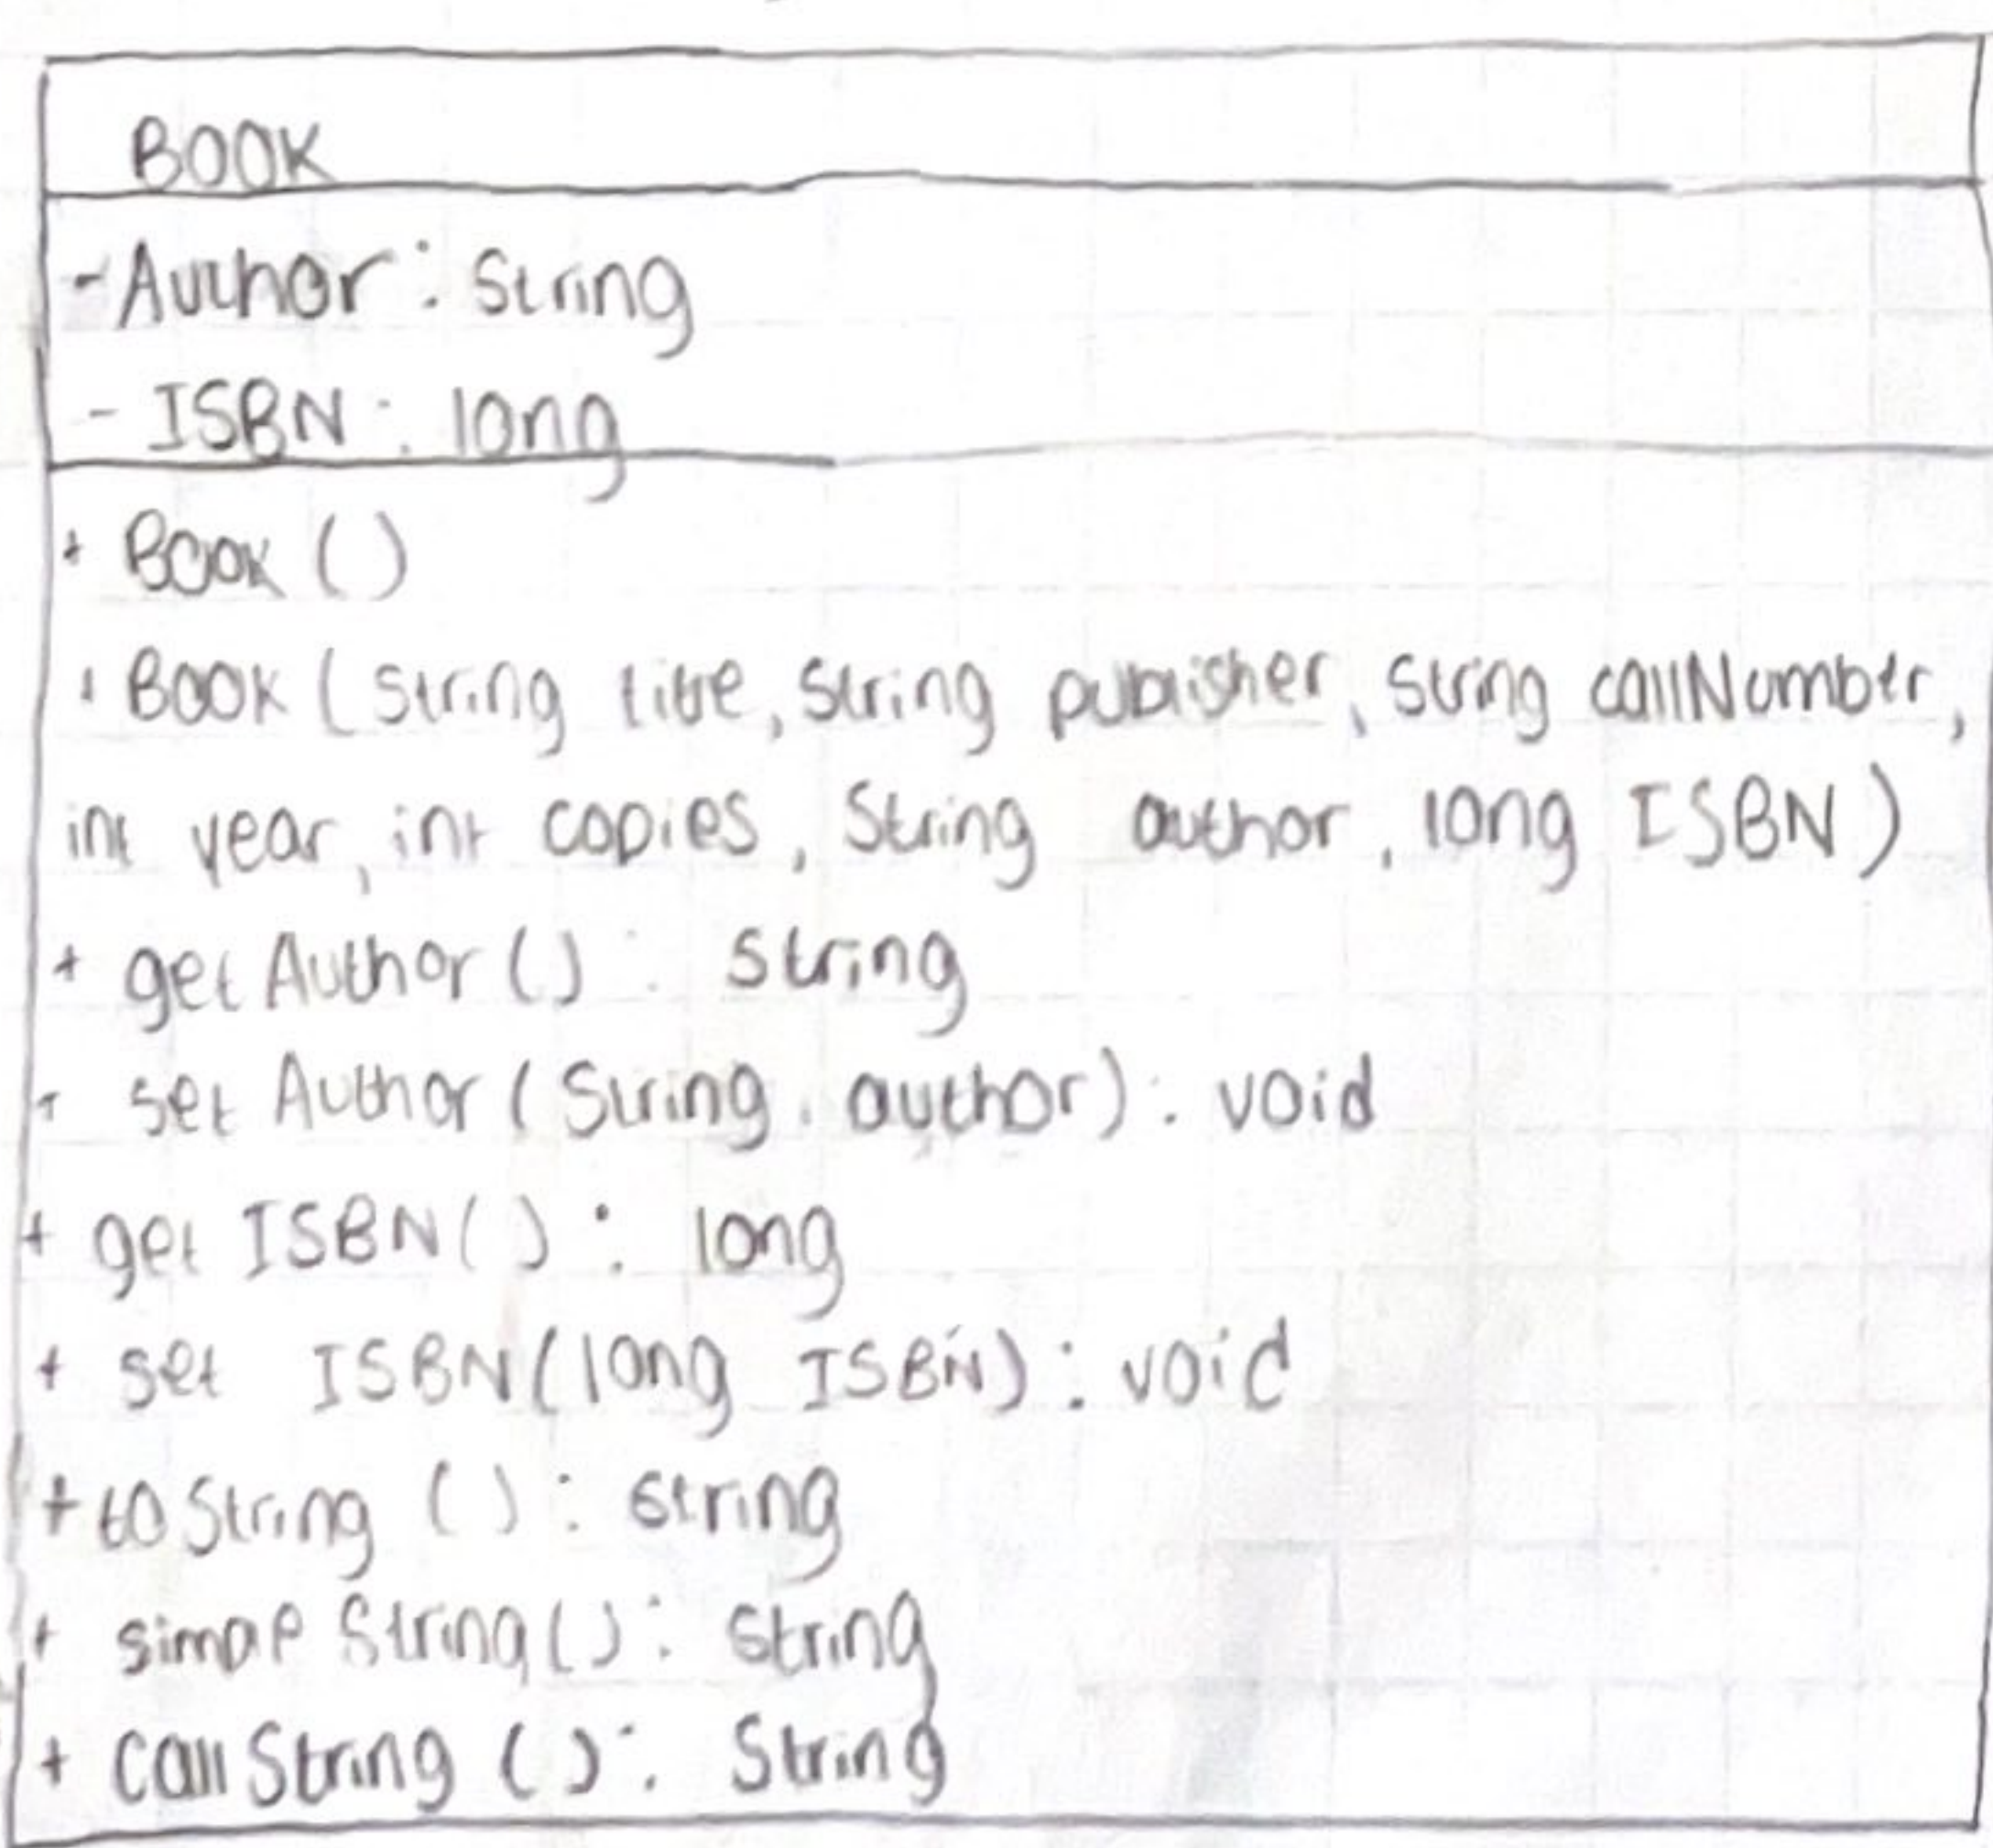 BOOK
- Author : String
- ISBN : long
+ Book ()
+ Book (String title, String publisher, String callNumber,
int year, int copies, String author, long ISBN)
+ getAuthor () : String
+ set Author (String author) : void
+ get ISBN () : long
+ set ISBN (long ISBN) : void
+ toString () : String
+ simple String () : String
+ call String () : String